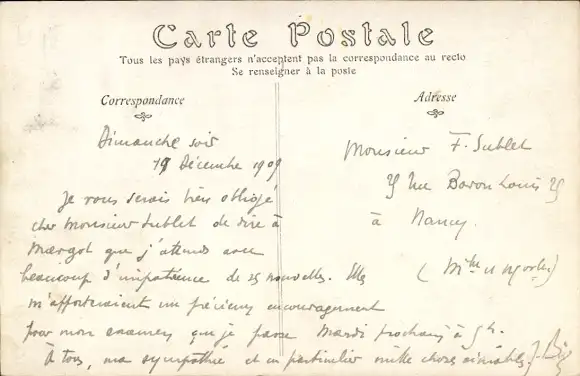 Carte Postale
Tous les pays étrangers n'acceptent pas la correspondance au recto
Se renseigner à la poste
Correspondance
Adresse
Dimanche soir
19 Décembre 1909
Je vous serais bien obligé
cher Monsieur Sublet de dire à
Margot que j'attends avec
beaucoup d'impatience de ses nouvelles. Elles
m'apporteraient un précieux encouragement
pour mon examen que je passe Mardi prochain à 5h.
À tous, ma sympathie et en particulier mille choses aimables.
Monsieur F. Sublet
25 Rue Baron Louis 25
à Nancy
(Mthe et Mlle)